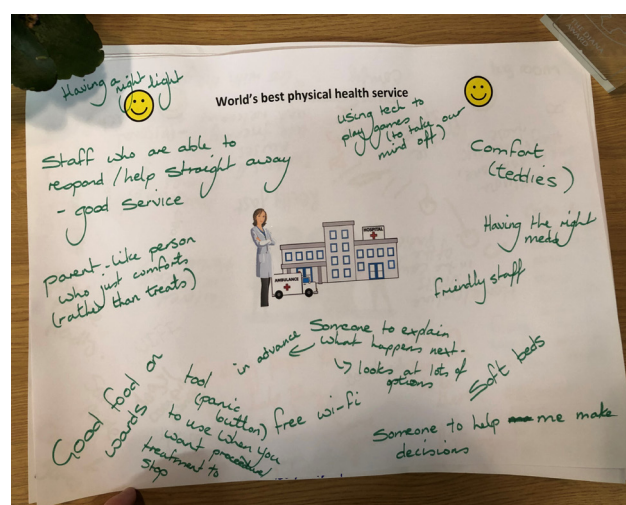 Having a night light
World's best physical health service
using tech to
play games
(to take our
mind off)
Staff who are able to
respond/help straight away
- good service
Comfort
(teddies)
parent-like person
who just comforts
(rather than treats)
Having the right
meds
friendly staff
HOSPITAL
AMBULANCE
Someone to explain
what happens next.
in advance
looks at lots of
options
Soft beds
Good food on
wards
tool
(panic
button)
to use when you
want procedure
treatment to
stop
free wi-fi
Someone to help me make
decisions